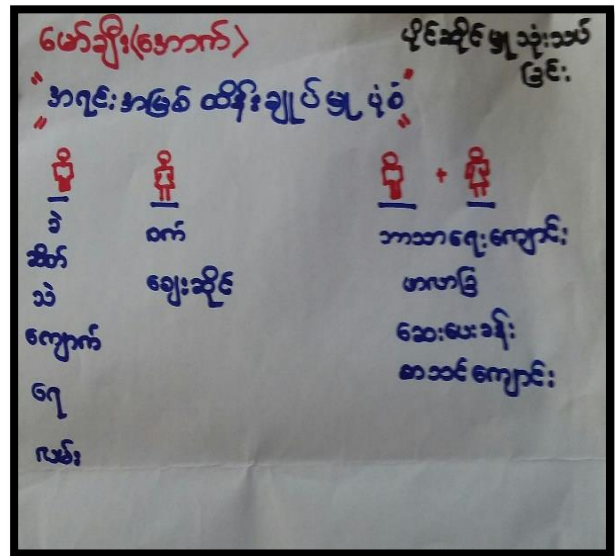 မော်ချီး(အောက်)
ပိုင်ဆိုင်မှု သုံးသပ်
ခြင်း
"အရင်းအမြစ် ထိန်းချုပ်မှု ပုံစံ"
ခဲ
ဆိတ်
သဲ
ကျောက်
ရေ
လမ်း
ဝက်
ဈေးဆိုင်
+
ဘာသာရေးကျောင်း
ဖာလာခြံ
ဆေးပေးခန်း
စာသင်ကျောင်း